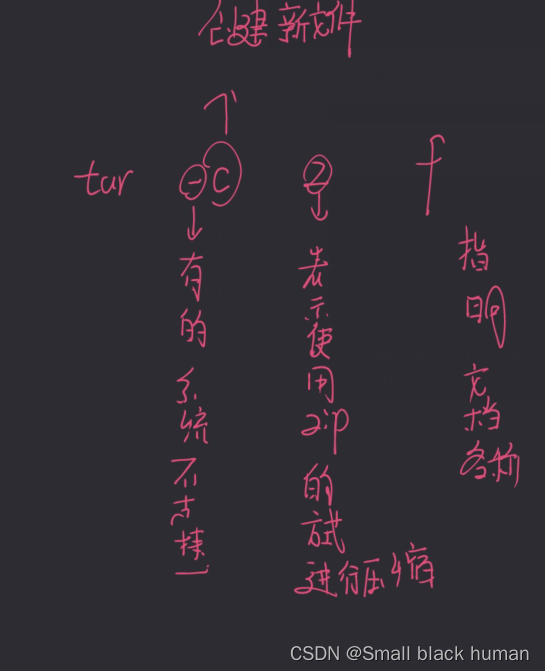 创建新文件
tar - c z f
有的系统不支持-
表示使用zip的方式进行压缩
指明文档名称
CSDN @Small black human